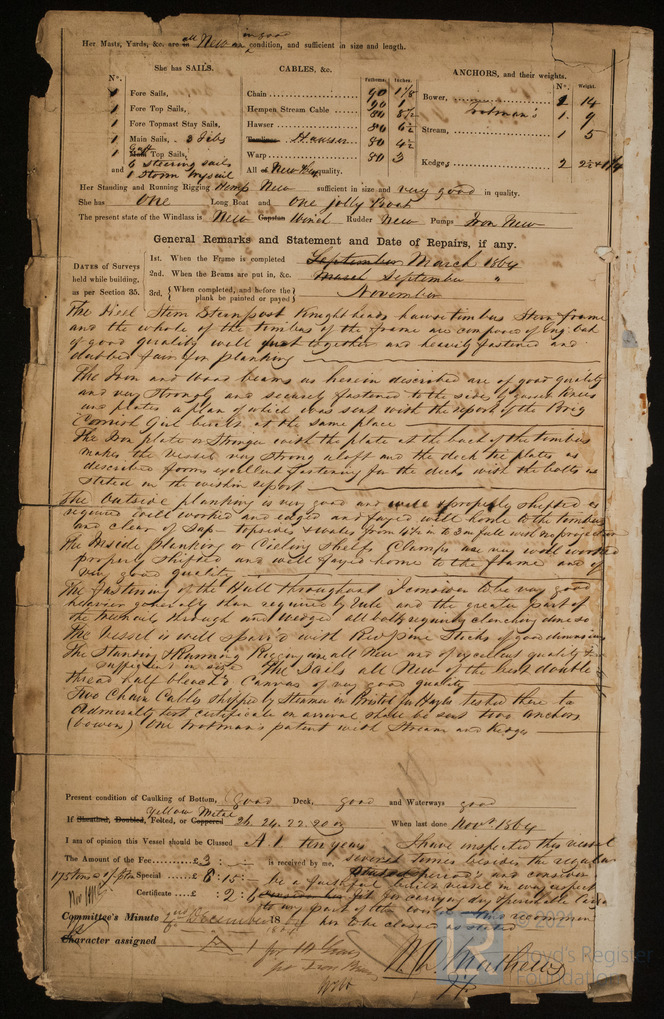 Her Masts, Yards, &c. are all New in good condition, and sufficient in size and length.
She has SAILS.
CABLES, &c.
Fathoms. Inches.
ANCHORS, and their weights.
Nº.
Nº. Weight.
1 Fore Sails,
Chain 90 1 1/8
Bower, 2 14
1 Fore Top Sails,
Hempen Stream Cable 90 1
Trotman's 1 9
1 Fore Topmast Stay Sails,
Hawser 80 6½
Stream, 1 5
1 Main Sails, 3 Jibs
Towlines Hawser 80 4½
1 Main Gaff Top Sails,
Warp 80 3
Kedges 2
and 6 steering sails
All of New quality.
1 Storm trysail
Her Standing and Running Rigging Hemp New sufficient in size and very good in quality.
She has One Long Boat and One jolly boat
The present state of the Windlass is New Capstan Wind Rudder New Pumps Iron New
General Remarks and Statement and Date of Repairs, if any.
DATES of Surveys held while building, as per Section 35.
1st. When the Frame is completed September March 1864
2nd. When the Beams are put in, &c. March September "
3rd. When completed, and before the plank be painted or payed November
The Keel Stem Sternpost Knightheads hawsetimbers Stern frame
and the whole of the timbers of the frame are composed of Eng. Oak
of good quality well put together and heavily fastened and
dubbed fair for planking
The Iron and Wood beams as herein described are of good quality
and very strongly and securely fastened to the sides by Knees
and plates a plan of which was sent with the report of the Brig
Cornish Girl built at the same place
The Iron plate or Stringer with the plate at the back of the timbers
makes the vessel very strong aloft and the deck tie plates as
described forms excellent fastening for the decks with the bolts as
stated in the within report
The Outside planking is very good and well & properly shifted as
required well worked and edged and fayed well home to the timbers
and clear of Sap topsides & wales from 4½ in to 3 in full with no projection
The Inside Planking or Cieling Shelfs Clamps are very well worked
properly shifted and well fayed home to the frame and of
good quality
The fastening of the Hull throughout I consider to be very good
heavier generally than required by rule and the greater part of
the treenails through and wedged all bolts regularly clenched
The Vessel is well spar'd with Red pine Sticks of good dimensions
The Standing & Running Rigging is all New and of excellent quality &
sufficient in size The Sails all New of the best double
thread half bleach'd Canvas of very good quality
Two Chain Cables shipped by Steamer in Bristol for Hayle tested there to
Admiralty test certificate on arrival shall be sent two anchors
(bowers) One Trotman's patent with Stream and Kedges
Present condition of Caulking of Bottom, good Deck, good and Waterways good
If Sheathed, Doubled, Felted, or Coppered Yellow Metal 26. 24. 22. 20 oz When last done Novr. 1864
I am of opinion this Vessel should be Classed A 1 ten years I have inspected this vessel
The Amount of the Fee £3 : - : - is received by me, several times besides the regular
175 tons Special £ 8 : 15 : - stated periods and consider
her a faithful built vessel in every respect
Certificate £ : 2 : 6 fit for carrying dry & perishable cargo
to any part of the world thus recommend
Committee's Minute December 1864 her to be classed as stated
Character assigned A 1